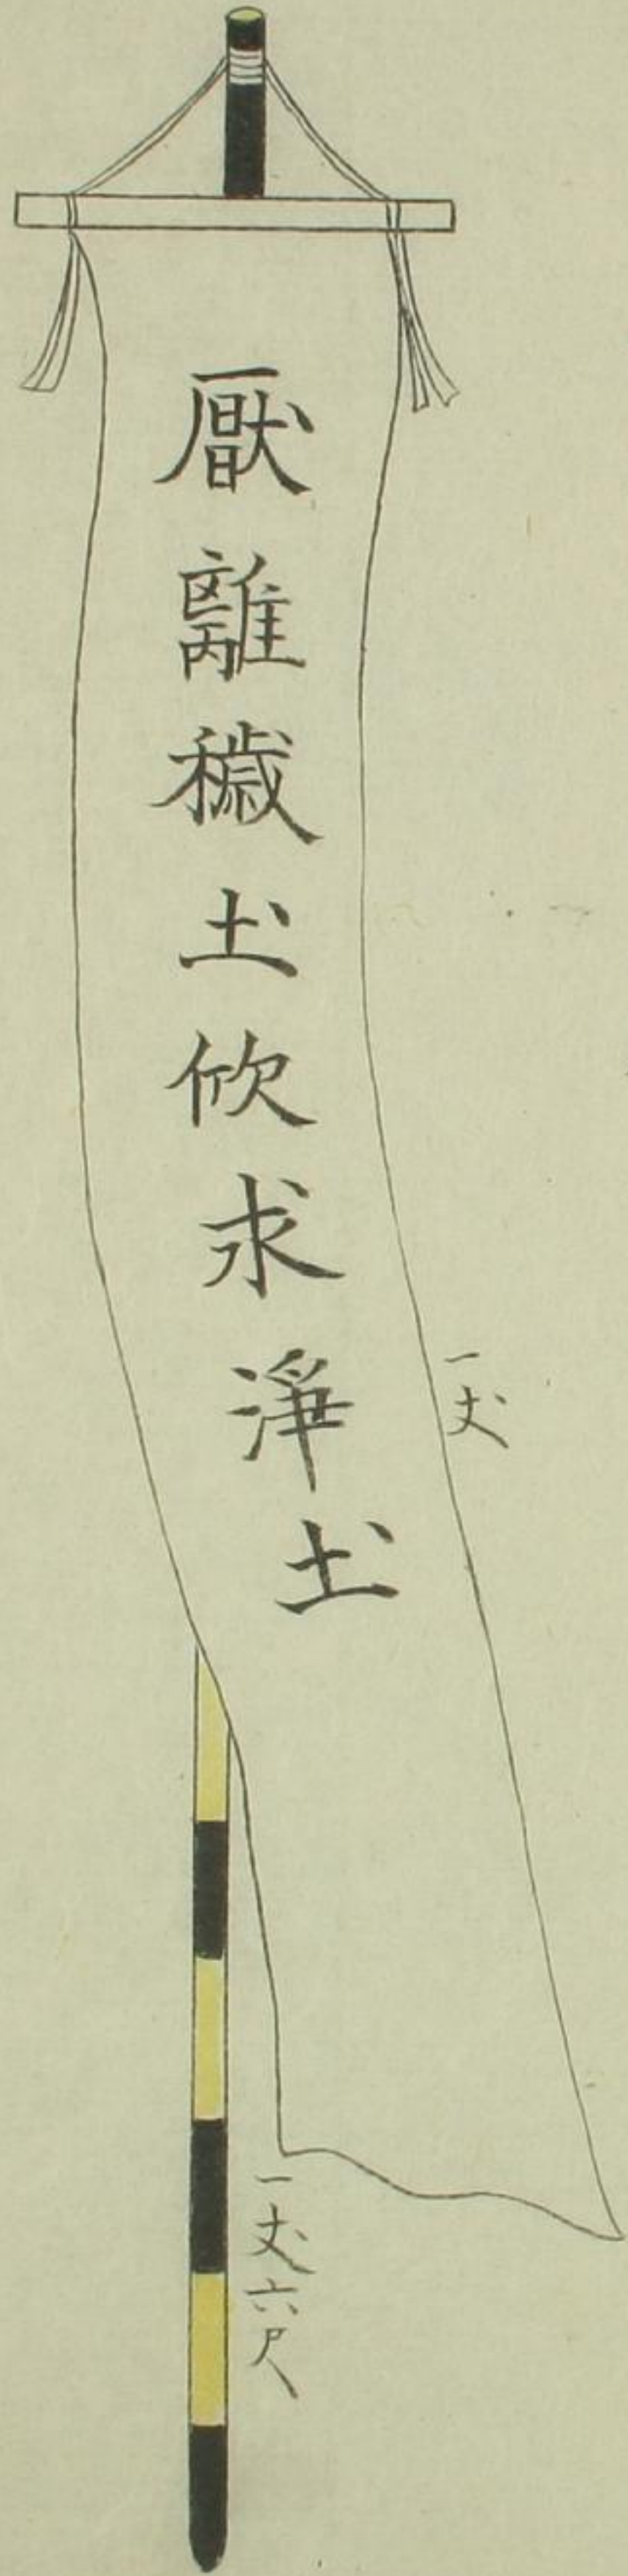 厭離穢土欣求淨土
一丈
一丈六尺